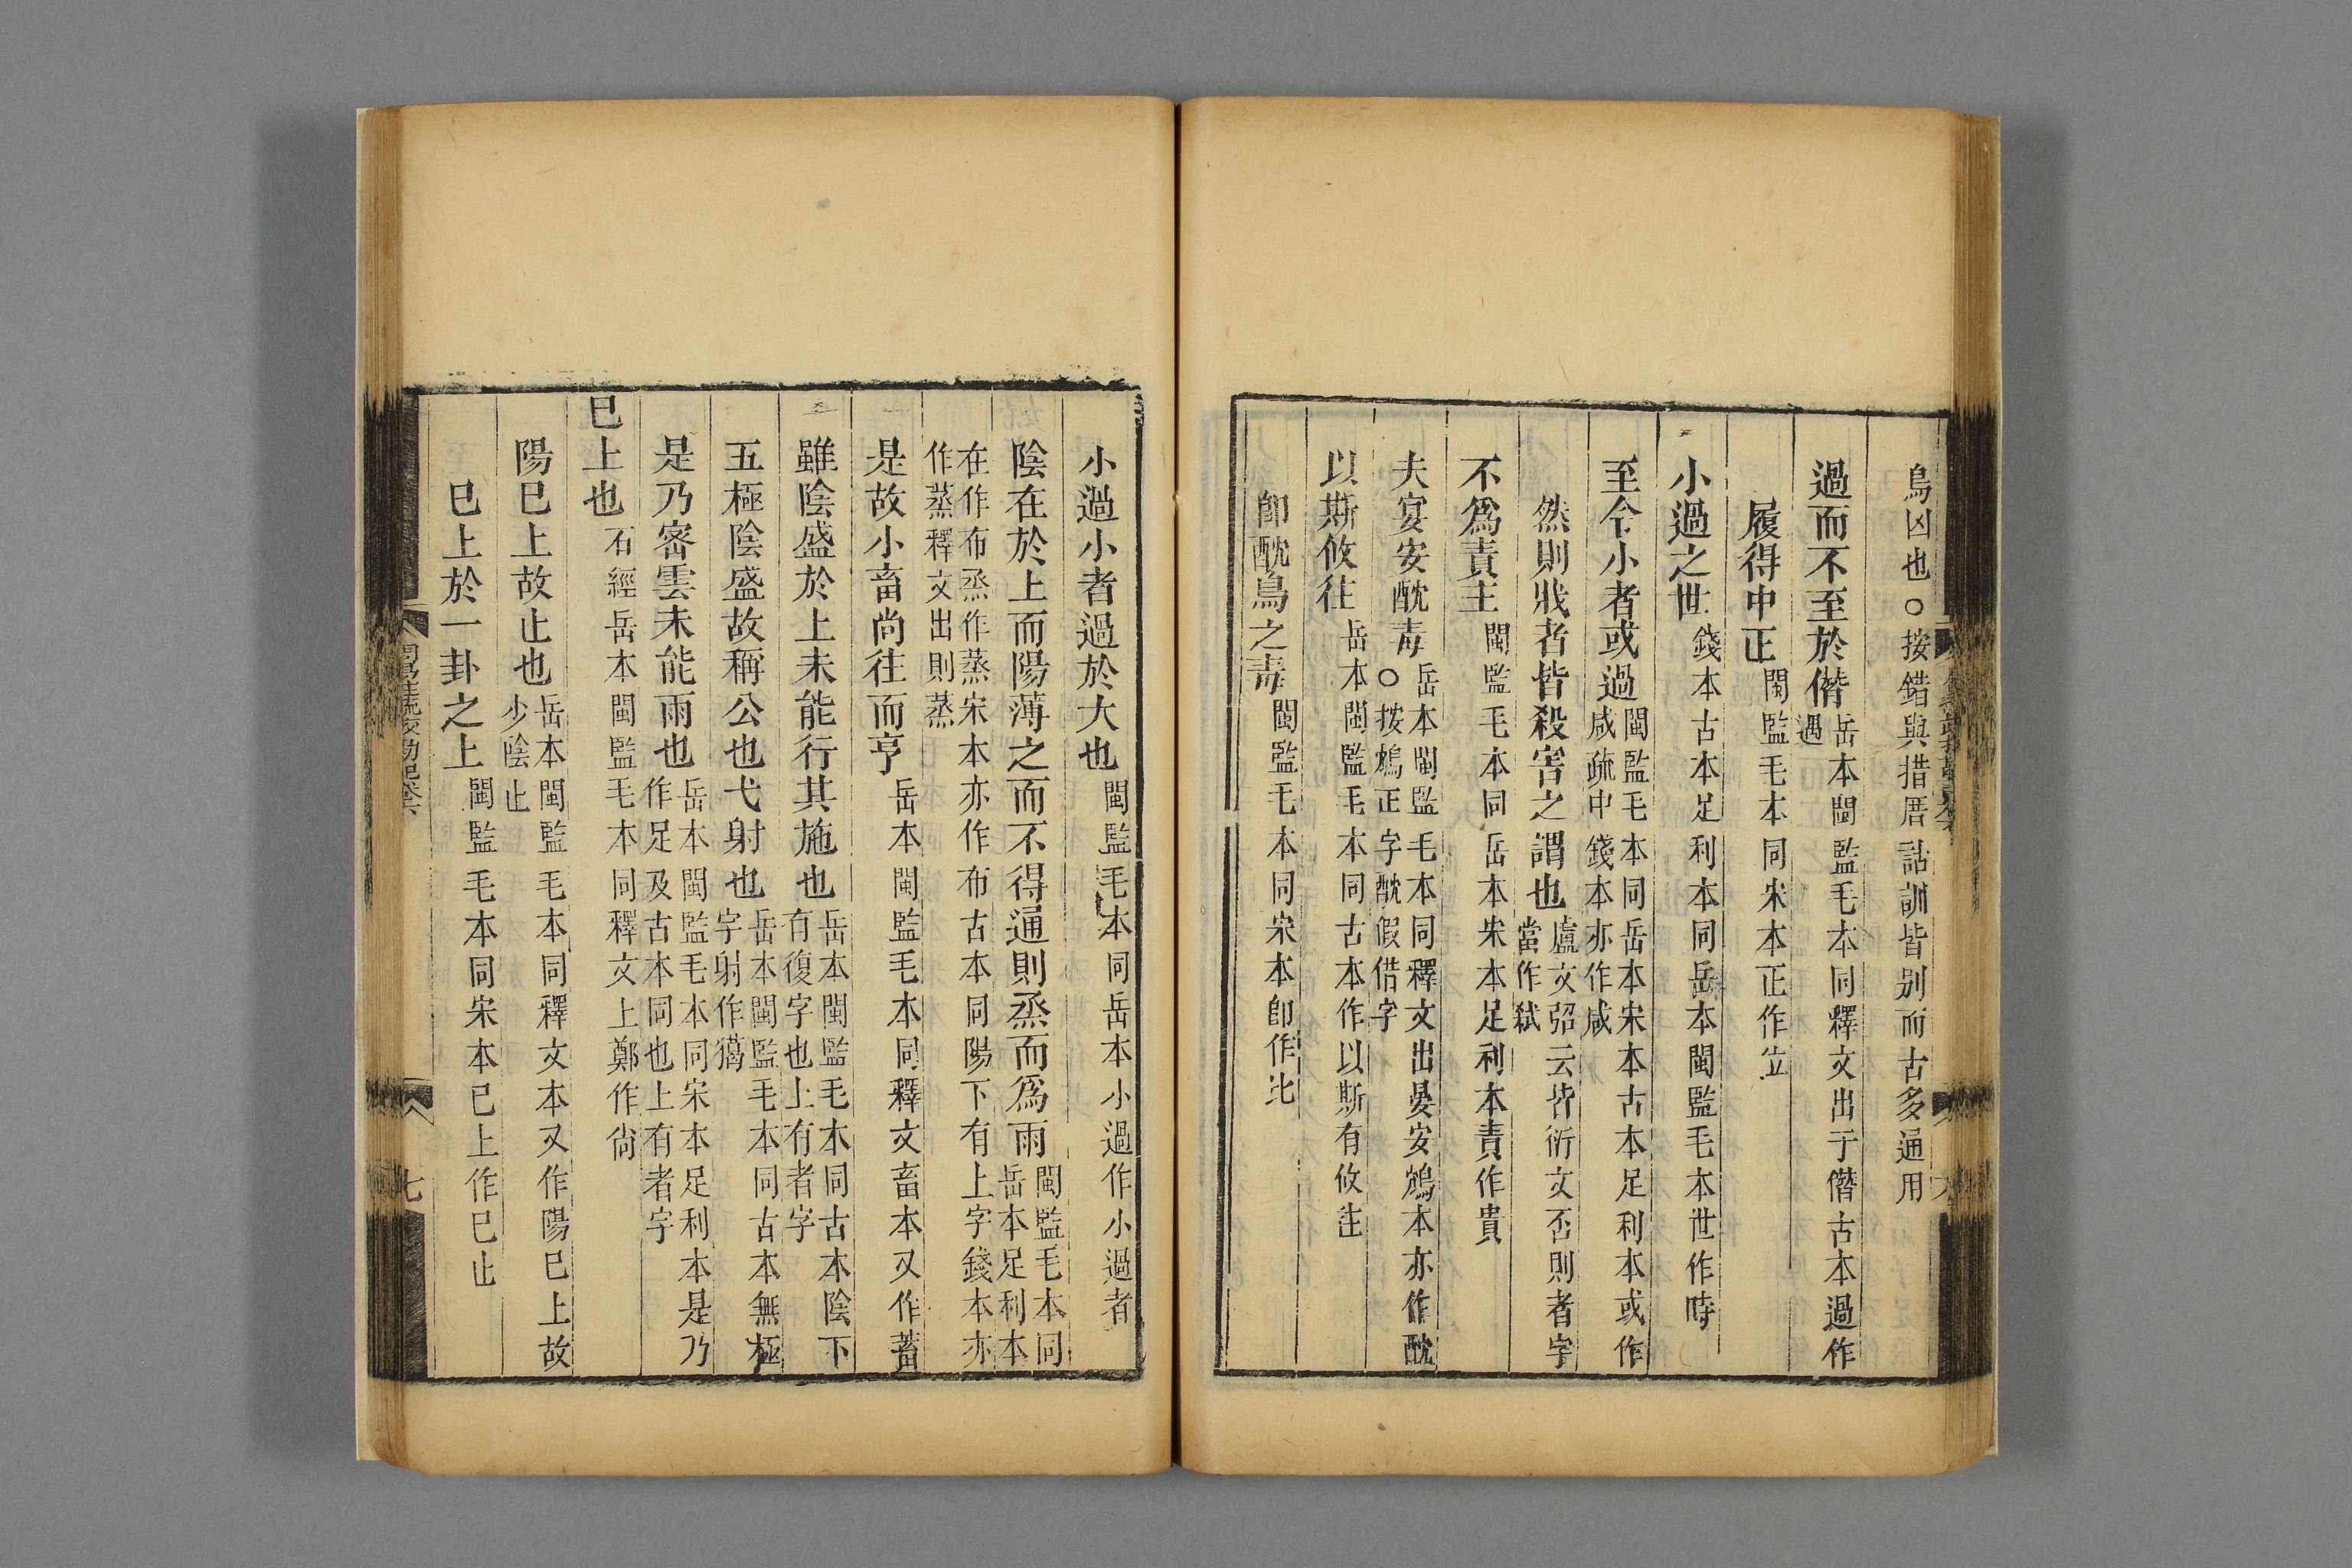 鳥凶也○按錯與措厝詁訓皆别而古多通用
過而不至於僭岳本閩監毛本同釋文出于僭古本過作過
履得中正閩監毛本同宋本正作立
小過之世錢本古本足利本同岳本閩監毛本世作時
至令小者或過閩監毛本同岳本宋本古本足利本或作咸疏中錢本亦作咸
然則戕者皆殺害之謂也盧文弨云皆衍文否則者字當作弑
不爲責主閩監毛本同岳本宋本足利本責作貴
夫宴安酖毒岳本閩監毛本同釋文出晏安鴆本亦作酖○按鴆正字酖假借字
以斯攸往岳本閩監毛本同古本作以斯有攸往
卽酖鳥之毒閩監毛本同宋本卽作比
小過小者過於大也閩監毛本同岳本小過作小過者
陰在於上而陽薄之而不得通則烝而爲雨閩監毛本同岳本足利本
在作布烝作蒸宋本亦作布古本同陽下有上字錢本亦作蒸釋文出則蒸
是故小畜尚往而亨岳本閩監毛本同釋文畜本又作蓄
雖陰盛於上未能行其施也岳本閩監毛本同古本陰下有復字也上有者字
五極陰盛故稱公也弋射也岳本閩監毛本同古本無極字射作獦
是乃密雲未能雨也岳本閩監毛本同宋本足利本是乃作足及古本同也上有者字
已上也石經岳本閩監毛本同釋文上鄭作尙
陽已上故止也岳本閩監毛本同釋文本又作陽已上故少陰止
已上於一卦之上閩監毛本同宋本已上作已止
七